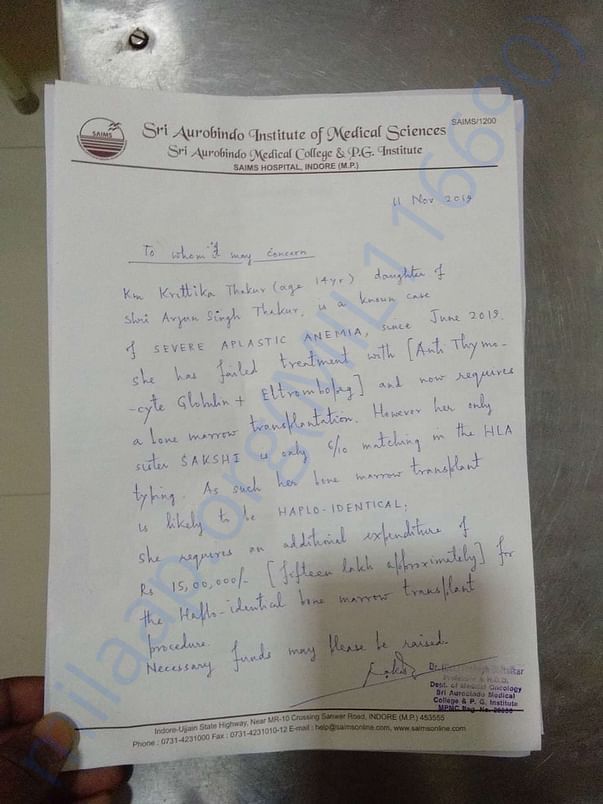 SAIMS
Sri Aurobindo Institute of Medical Sciences
SAIMS/1200
Sri Aurobindo Medical College & P.G. Institute
SAIMS HOSPITAL, INDORE (M.P.)
11 Nov 2019
To whom it may concern
Km Krittika Thakur (age 14yr) daughter of
Shri Arjun Singh Thakur, is a known case
of SEVERE APLASTIC ANEMIA, since June 2019.
she has failed treatment with [Anti Thymo-
-cyte Globulin + Eltrombopag] and now requires
a bone marrow transplantation. However her only
sister SAKSHI is only 6/10 matching in the HLA
typing. As such her bone marrow transplant
is likely to be HAPLO-IDENTICAL.
she requires an additional expenditure of
Rs 15,00,000/- [fifteen lakh approximately] for
the Haplo-identical bone marrow transplant
procedure.
Necessary funds may please be raised.
Dr.
Professor & H.O.D.
Dept. of Medical Oncology
Sri Aurobindo Medical
College & P. G. Institute
MPMC Reg. No.
Indore-Ujjain State Highway, Near MR-10 Crossing Sanwer Road, INDORE (M.P.) 453555
Phone : 0731-4231000 Fax : 0731-4231010-12 E-mail : help@saimsonline.com, www.saimsonline.com
milaap.org(MIL116690)